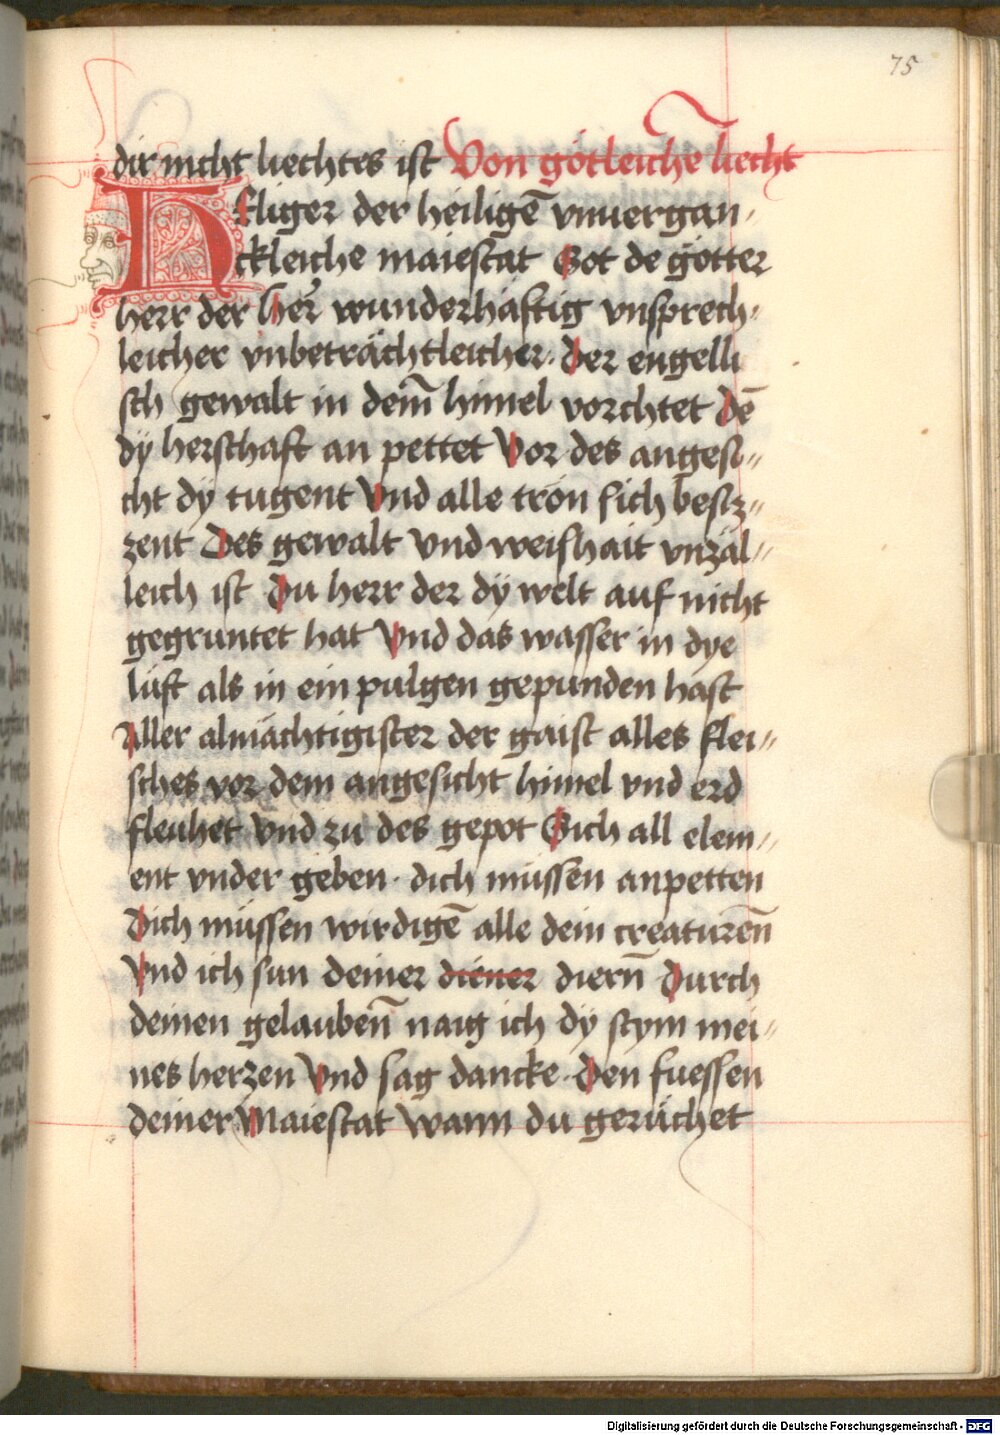 75
dir nicht liechtes ist Von götleichē liecht
Heiliger der heiligē vnuergan-
ckleiche maiestat Got de götter
herr der her̄ wunderhaftig vnsprech-
leicher vnbeträchtleicher. Der engelli
sch gewalt in dem̄ himel vorchtet Dē
dÿ herschaft an pettet Vor des angesi-
cht dÿ tugent Vnd alle trön sich besiz-
zent Des gewalt Vnd weishait vnzäl-
leich ist Du herr der dÿ welt auf nicht
gegruntet hat Vnd das wasser in dye
lüft als in ein pulgen gepunden hast
Aller almächtigister der gaist alles flei-
sches vor dem angesicht himel vnd erd
fleuhet Vnd zu des gepot Sich all elem-
ent vnder geben. dich müssen anpetten
Dich müssen wirdigē alle dein creaturen̄
Vnd ich sun deiner diener diern̄ Durch
deinen gelauben̄ naig ich dÿ stym mei-
nes herzen Vnd sag dancke. Den fuessen
deiner Maiestat Wann du gerüchet
Digitalisierung gefördert durch die Deutsche Forschungsgemeinschaft - DFG